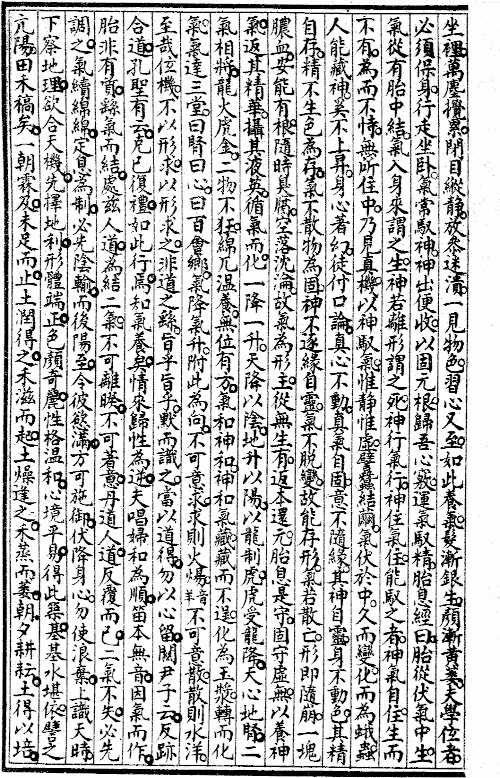 坐裡萬塵攪累閉目縱靜放黍迷漬一見物色習心又至如此養氣髮漸銀生顏漸黃羙夫學位者
必須保身行走坐卧氣常馭神神出便收以固元根歸吾心敦運氣馭精胎息經曰胎從伏氣中生
氣從有胎中結氣入身來謂之生神若離形謂之死神行氣行神住氣住能馭之者神氣自住生而
不有為而不恃無所住中乃見真機以神馭氣惟靜惟虛譬蠶結繭氣伏於中久而變化而為蛾蟲
人能藏神奚不上昇身心著幻徒付口論真心不動真氣自固意不隨緣其神自靈身不動色其精
自存精不生色為存氣不散物為固神不逐緣自靈氣不脫變故能存形氣若散亡形即隨崩一塊
膿血安能有根隨時臭腐空落沈淪故氣為形主從無生有返本還元胎息是守固守虛無以養神
氣返其精華攝其液英循氣而化一降一升天降以陰地升以陽以龍制虎虎受龍降天心地賜二
氣相將龍火虎金二物不狂綿兀溫養無位有方氣和神和神和氣藏藏而不逞化為玉漿轉而化
氣氣達三堂曰腎曰心曰百會鄉氣降氣升附此為向不可意求求則火煬音羊不可意散散則水洋
至哉位機不以形求以形求之非道之繇旨乎旨乎默而識之當以道得勿以心留關尹子云反跡
合道孔聖有云克已復禮如此行爲知氣養矣情來歸性為逆夫唱婦和為順笛本無音因氣而作
胎非有質繇氣而結處茲人道為結二氣不可離睽不可著意丹道人道反覆而已二氣不失必先
調之氣續綿綿定息為制必先陰輸而後陽至令彼慾滿方可施御伏降身心勿使浪蕩上識天時
下察地理欲合天機先擇地利形體端正色顏奇麗性格溫和心境平易得此築基基水堪依譬之
亢陽田禾槁矣一朝霖及未足而止土潤得之禾滋而起土燥逢之禾烝而萎朝夕耕耘土得以培